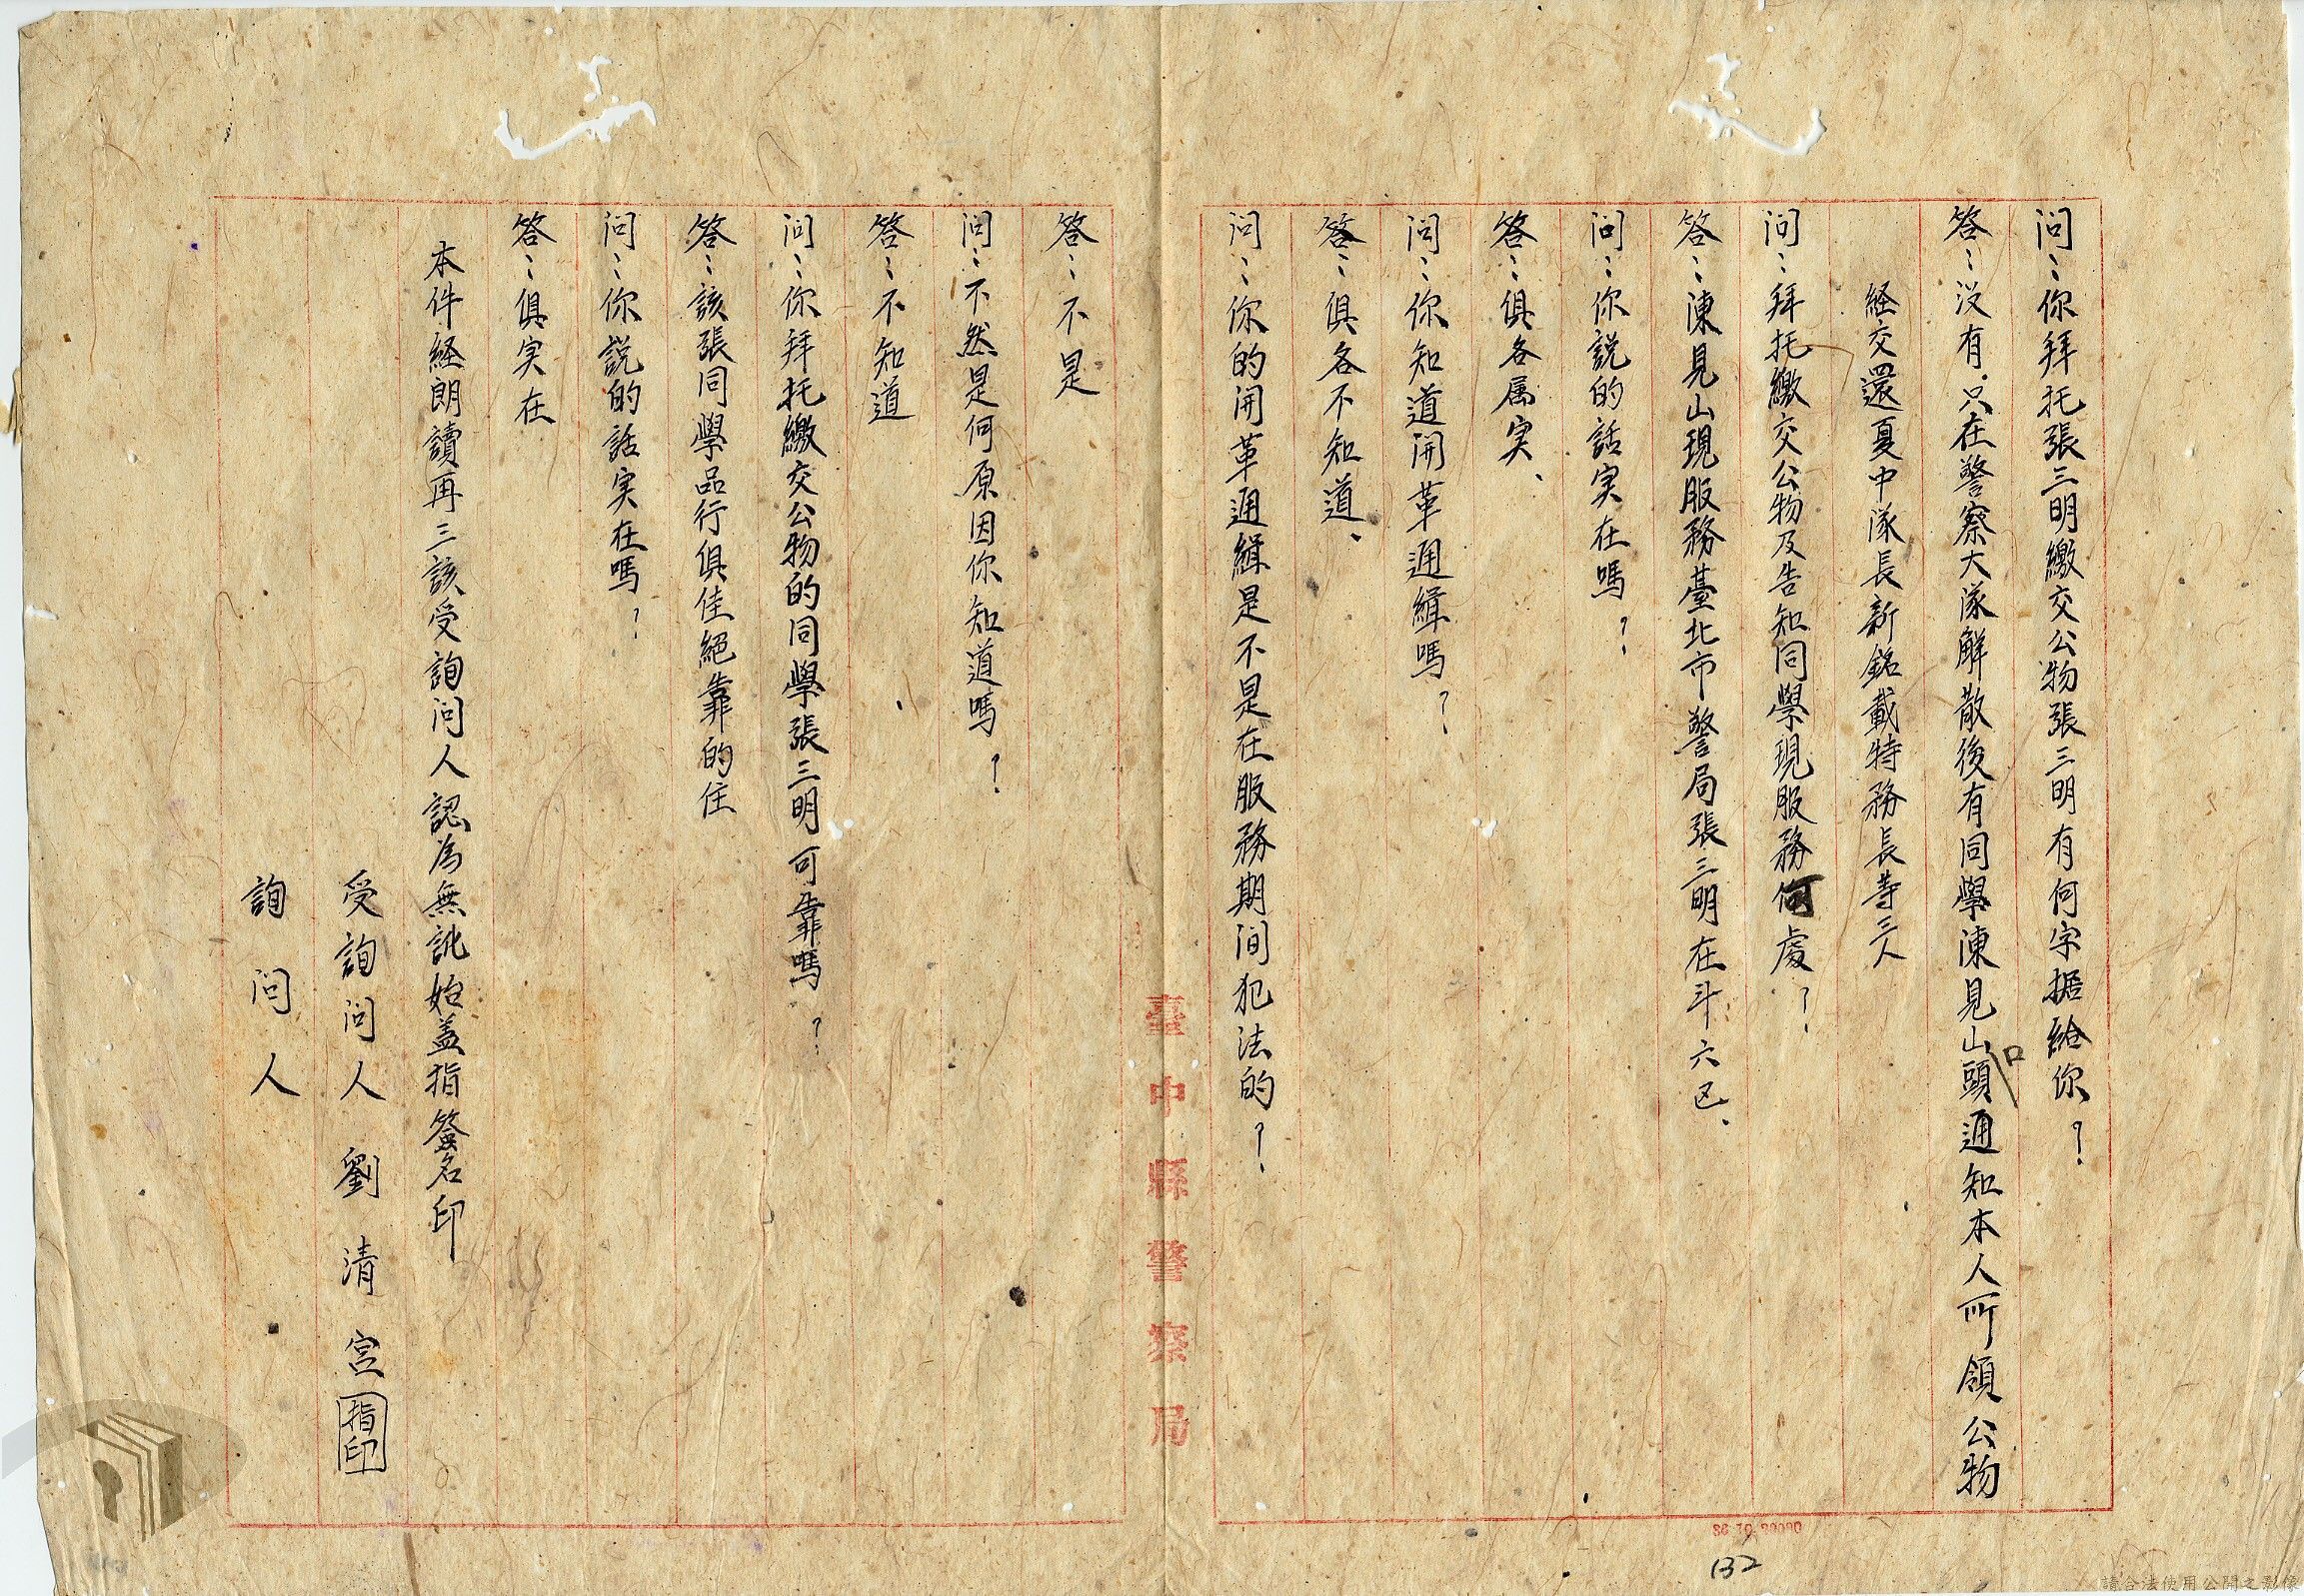 问：你拜托張三明繳交公物張三明有何字据給你？
答：没有．只在警察大隊解散後有同學陳見山口頭通知本人所領公物
経交還夏中隊長新銘載特務長等三人
问：拜托繳交公物及告知同學現服務何處？
答：陳見山現服務臺北市警局張三明在斗六区、
问：你説的話実在嗎？
答：俱各属実、
问：你知道開革通緝嗎？
答：俱各不知道、
问：你的開革通緝是不是在服務期间犯法的？
臺中縣警察局
答：不是
问：不然是何原因你知道嗎？
答：不知道
问：你拜托繳交公物的同學張三明可靠嗎？
答：該張同學品行俱佳絕靠的住
问：你説的話実在嗎？
答：俱実在
本件経朗讀再三該受詢问人認為無訛始盖指簽名印
受詢问人 劉清宮 指印
詢问人
36 10 20000
132
請合法使用公開之影像